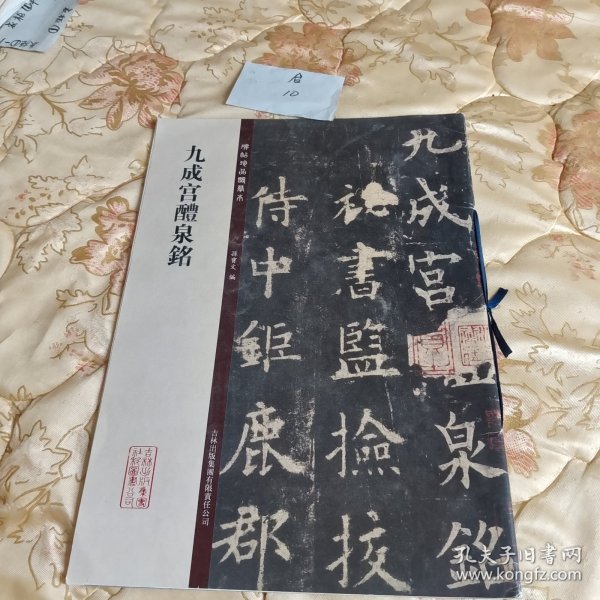 九成宮醴泉銘
碑帖珍品臨摹本
孫寶文 編
吉林出版集團有限責任公司
九成宮醴泉銘
祕書監撿挍
侍中鉅鹿郡
10
孔夫子旧书网
www.kongfz.com